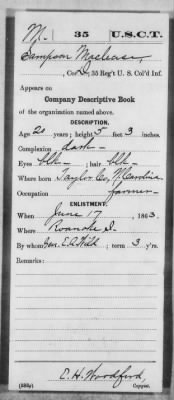 M. 35 U.S.C.T.
Sampson
, Co. , 35 Reg't U. S. Col'd Inf.
Appears on
Company Descriptive Book
of the organization named above.
DESCRIPTION.
Age 20 years; height 5 feet 3 inches.
Complexion dark
Eyes blk ; hair blk
Where born Taylor Co, N Carolina
Occupation farmer
ENLISTMENT.
When June 17, 1863.
Where Roanoke I.
By whom Gen. E A Wild; term 3 y'rs.
Remarks:
E. H. Woodford,
Copyist.